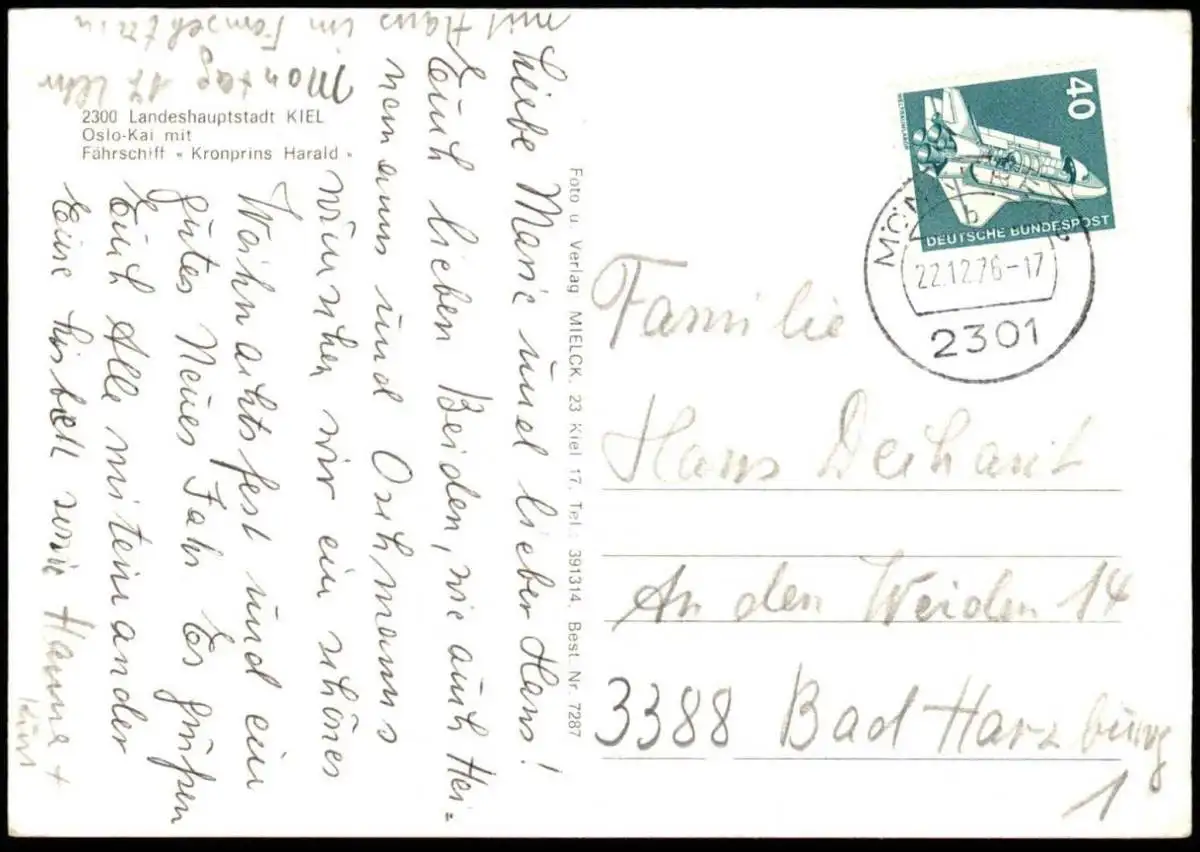 mit Hans im Fernsehen
Montag 17 Uhr
2300 Landeshauptstadt KIEL
Oslo-Kai mit
Fährschiff « Kronprins Harald »
Liebe Marie und lieber Hans!
Euch lieben Beiden, wie auch Hei-
nemanns und Oschmanns
wünschen wir ein schönes
Weihnachtsfest und ein
gutes Neues Jahr Es grüßen
Euch Alle miteinander
Eure Lisbeth sowie Hanna +
Kurt
Foto u. Verlag MIELCK, 23 Kiel 17, Tel.: 391314, Best. Nr. 7287
40
WELTRAUMLABOR
DEUTSCHE BUNDESPOST
b
22.12.76-17
2301
Familie
Hans Deihart
An den Weiden 14
3388 Bad Harzburg
1